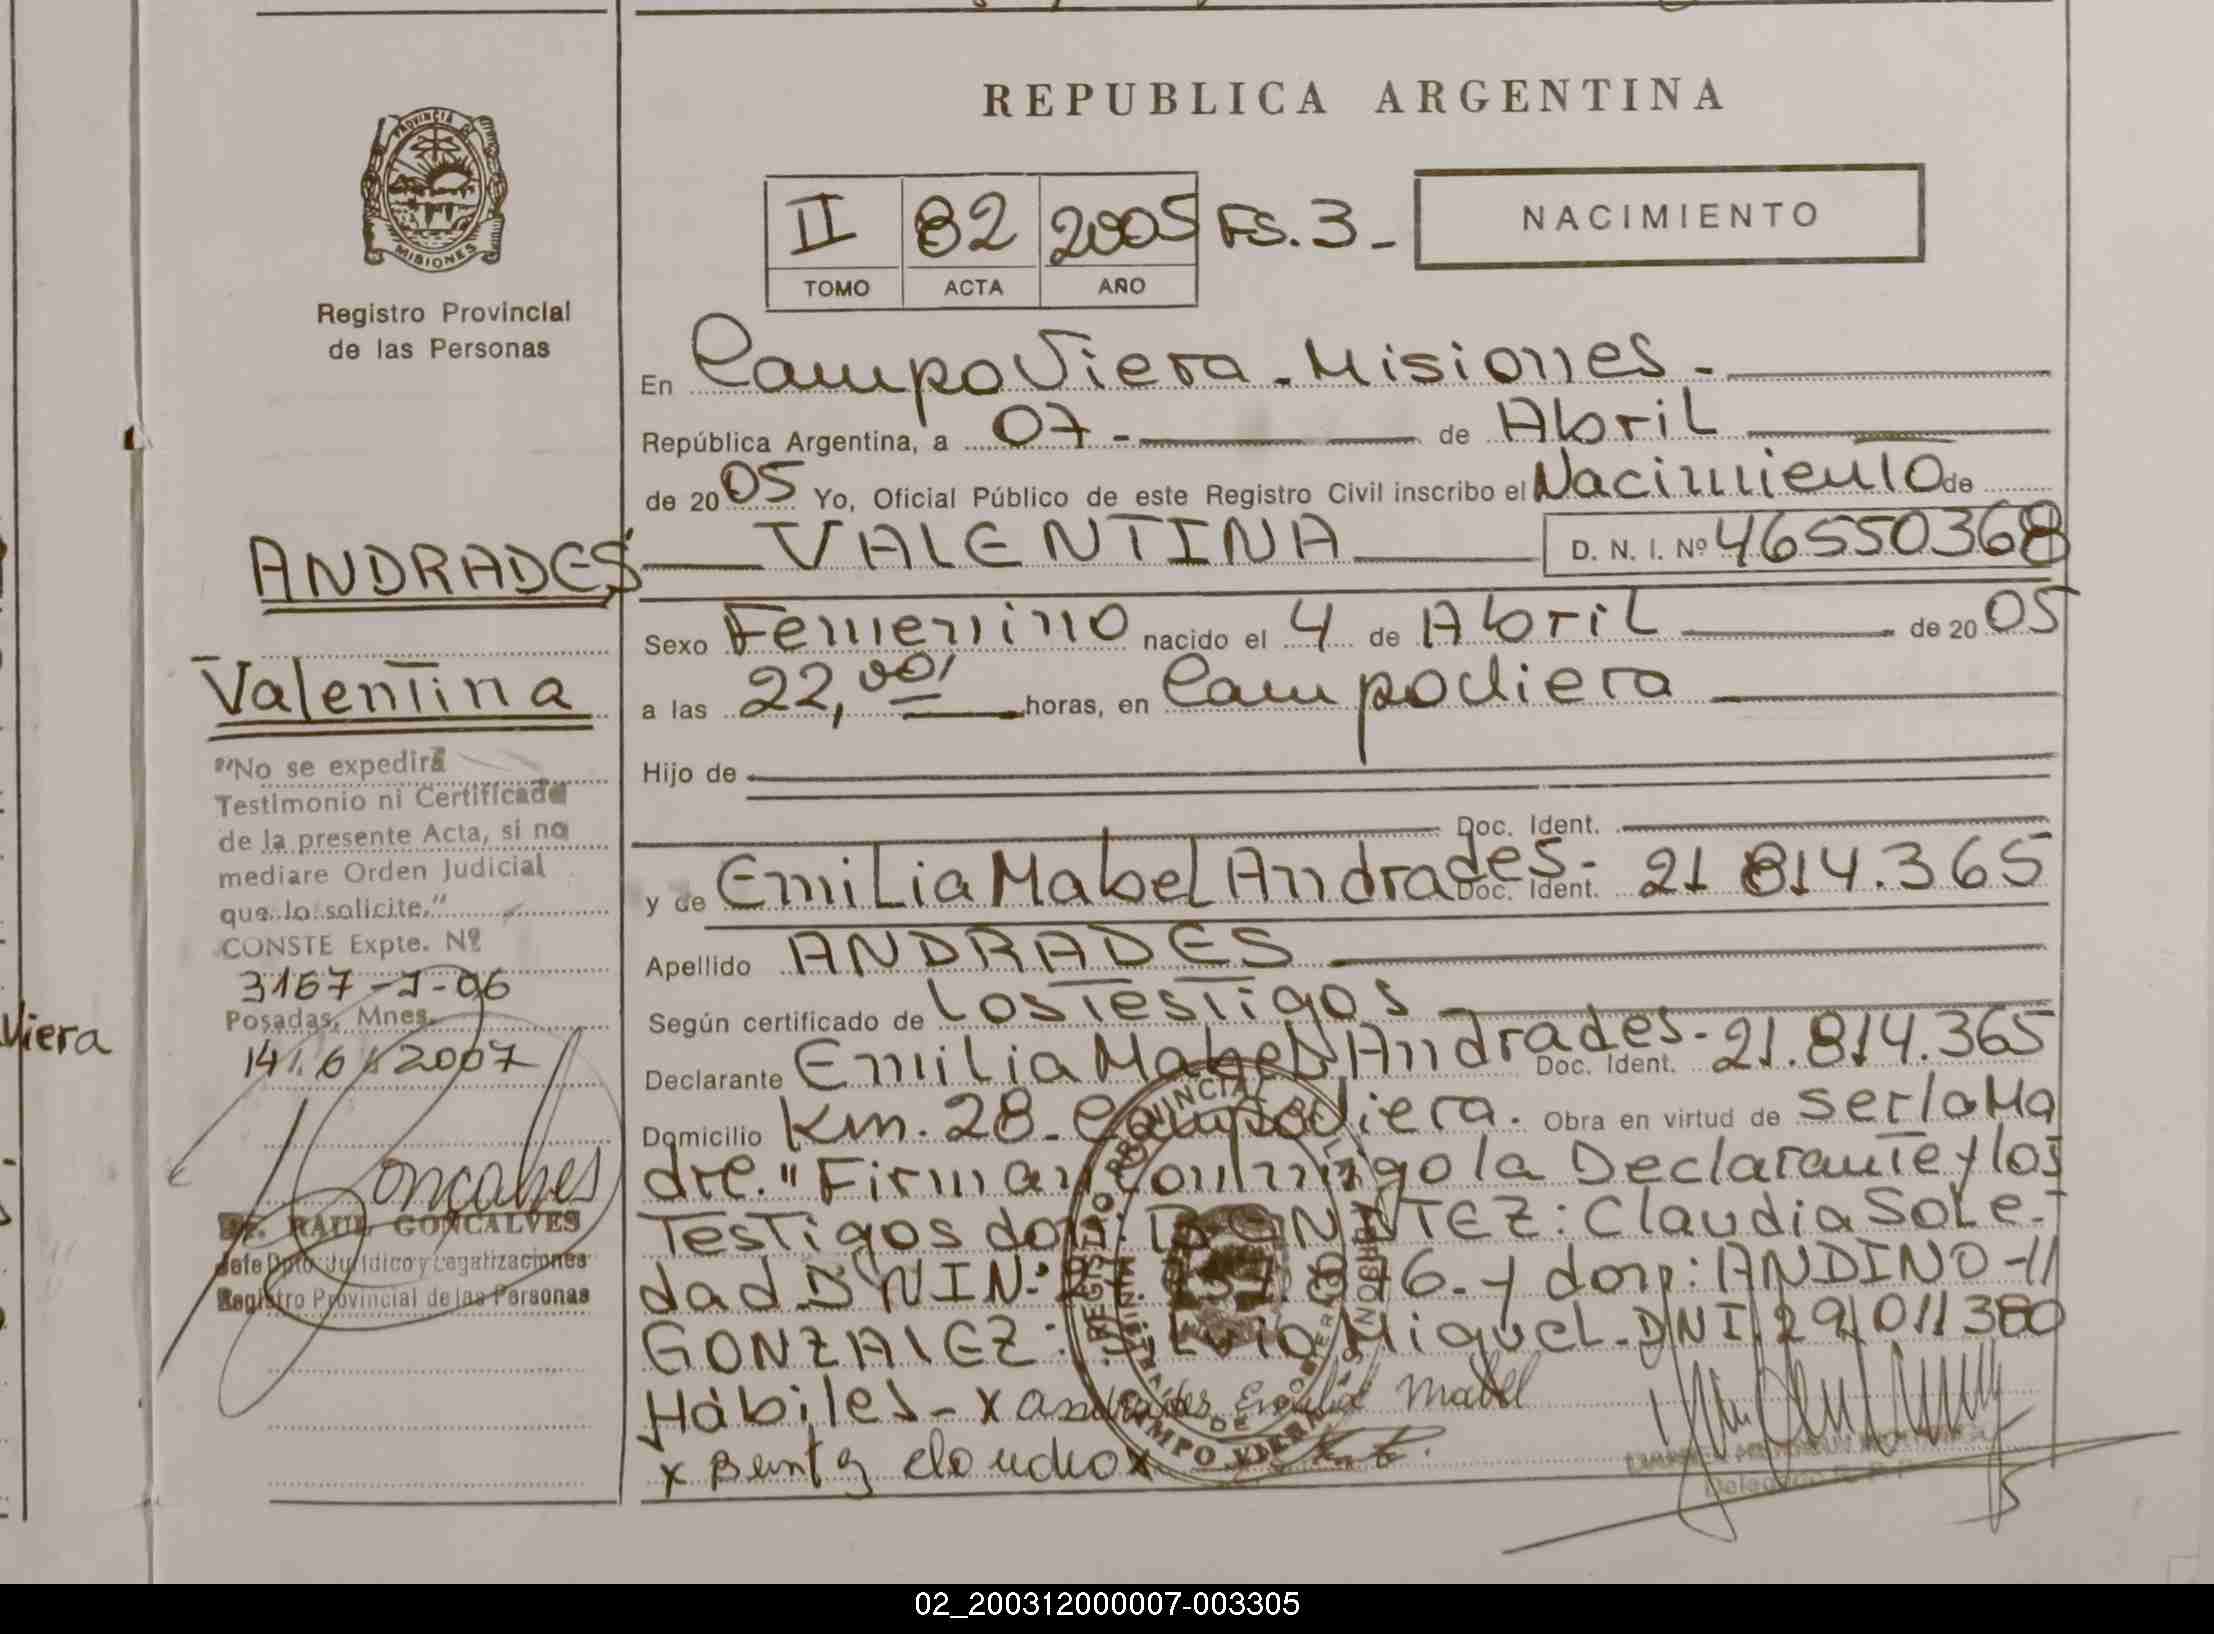 REPUBLICA ARGENTINA
PROVINCIA DE MISIONES
Registro Provincial
de las Personas
II 82 2005 FS. 3-
TOMO ACTA AÑO
NACIMIENTO
En Campo Viera - Misiones -
República Argentina, a 07 - de Abril
de 2005 Yo, Oficial Público de este Registro Civil inscribo el Nacimiento de
VALENTINA D. N. I. Nº 46550368
Sexo Femenino nacido el 4 de Abril de 2005
a las 22,00 horas, en Campo Viera
Hijo de
Doc. Ident.
y de Emilia Mabel Andrades - Doc. Ident. 21 814.365
Apellido ANDRADES
Según certificado de Los Testigos
Declarante Emilia Mabel Andrades - Doc. Ident. 21.814.365
Domicilio Km. 28 - Campo Viera. Obra en virtud de ser la Ma
dre. " Firman conmigo la Declarante y los
Testigos don: BENITEZ: Claudia Sole-
dad DNI Nº 816 - y don: ANDINO -//
GONZALEZ: Silvio Miguel - DNI. 29 011 380
Hábiles - x Andrades Emilia Mabel
x
ANDRADES
Valentina
"No se expedirá
Testimonio ni Certificado
de la presente Acta, si no
mediare Orden Judicial
que lo solicite."
CONSTE Expte. Nº
3167-J-06
Posadas, Mnes.
14/.6/2007
Goncalves
Dr. RAUL GONCALVES
Jefe Dpto. Jurídico y Legalizaciones
Registro Provincial de las Personas
Viera
02_200312000007-003305